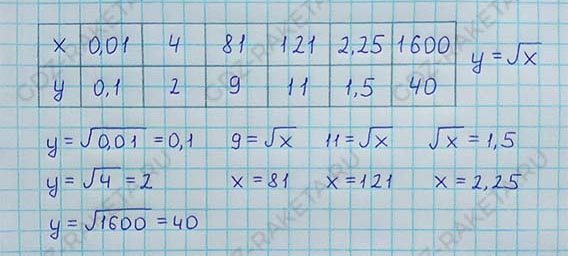 x 0,01 4 81 121 2,25 1600 y = √x
y 0,1 2 9 11 1,5 40
y = √0,01 = 0,1 9 = √x 11 = √x √x = 1,5
y = √4 = 2 x = 81 x = 121 x = 2,25
y = √1600 = 40
GDZ-RAKETA.RU